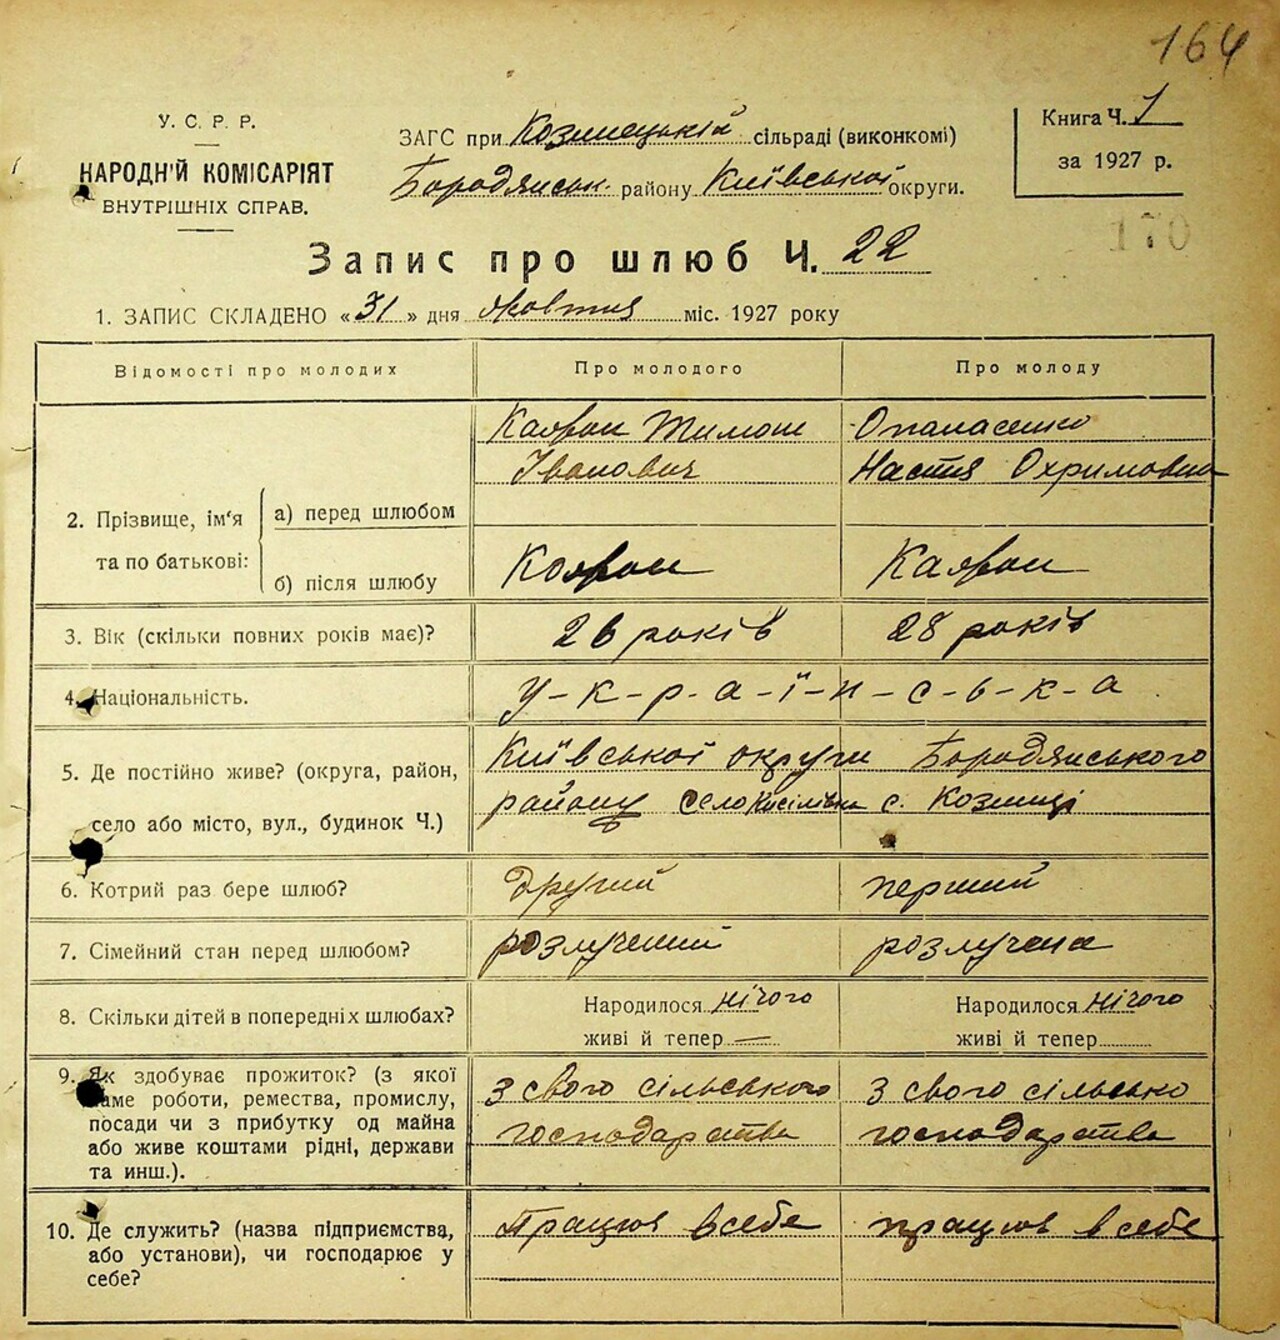 164
У. С. Р. Р.
НАРОДНІЙ КОМІСАРІЯТ
ВНУТРІШНІХ СПРАВ.
ЗАГС при Козинецькій сільраді (виконкомі)
Бородянськ. району Київської округи.
Книга Ч. 1
за 1927 р.
170
Запис про шлюб Ч. 22
1. ЗАПИС СКЛАДЕНО «31» дня Жовтня міс. 1927 року
Відомості про молодих Про молодого Про молоду
2. Прізвище, ім'я та по батькові:
а) перед шлюбом
Тимош
Іванович
Опанасенко
Настя Охримовна
б) після шлюбу
3. Вік (скільки повних років має)? 26 років 28 років
4. Національність. У-к-р-а-ї-н-с-ь-к-а
5. Де постійно живе? (округа, район,
село або місто, вул., будинок Ч.)
Київської округи Бородянського
району село с. Козинці
6. Котрий раз бере шлюб? другий перший
7. Сімейний стан перед шлюбом? розлучений розлучена
8. Скільки дітей в попередніх шлюбах?
Народилося нічого
живі й тепер —
Народилося нічого
живі й тепер
9. Як здобуває прожиток? (з якої
саме роботи, ремества, промислу,
посади чи з прибутку од майна
або живе коштами рідні, держави
та инш.).
З свого сільського
господарства
З свого сілько
господарства
10. Де служить? (назва підприємства,
або установи), чи господарює у
себе?
Працює в себе
працює в себе